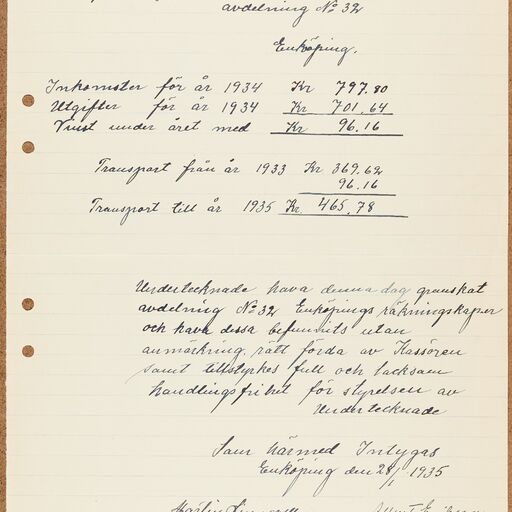 avdelning No 32
Enköping.
Inkomster för år 1934 Kr 797.80
Utgifter för år 1934 Kr 701.64
Vinst under året med Kr 96.16
Transport från år 1933 Kr 369.62
96.16
Transport till år 1935 Kr. 465.78
Undertecknade hava denna dag granskat
avdelning No 32 Enköpings räkningskaper
och hava dessa befunnits utan
anmärkning rätt förda av Kassören
samt tillstyrkes full och tacksam
handlingsfrihet för styrelsen av
Undertecknade
Som härmed Intygas
Enköping den 28/1 1935